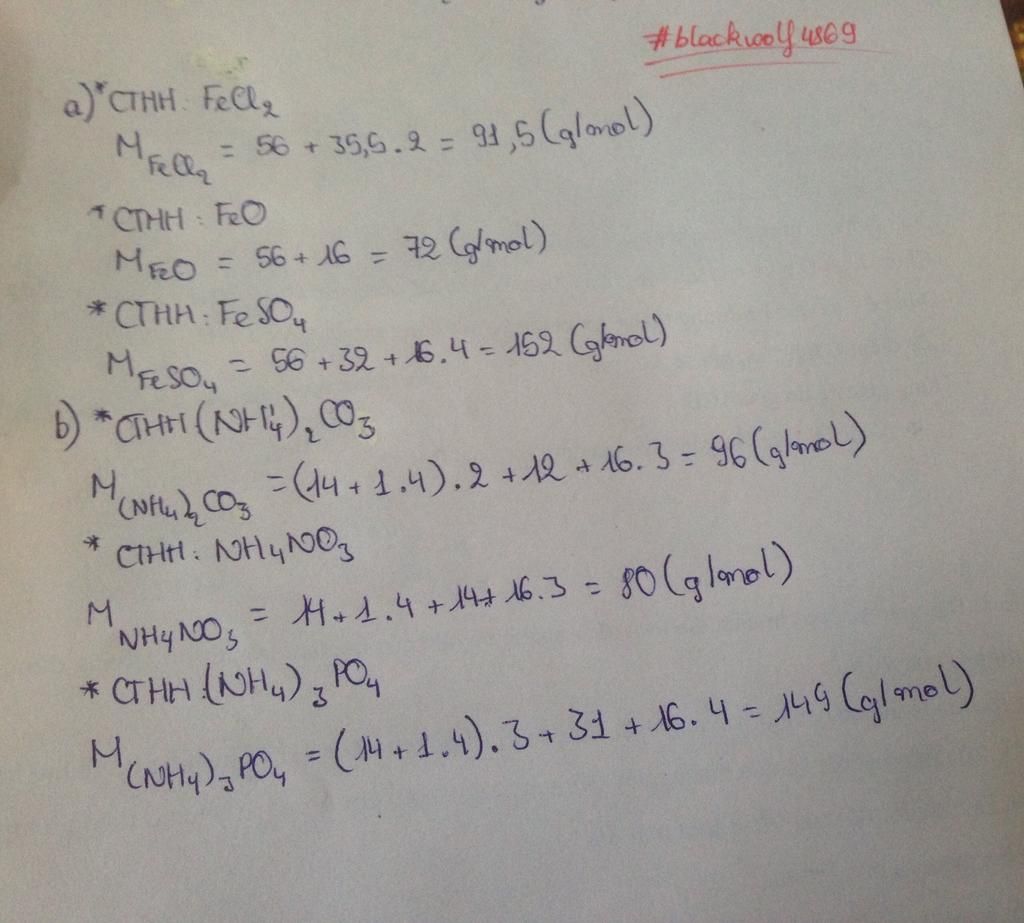 #blackwolf4869
a) * CTHH: FeCl₂
M FeCl₂ = 56 + 35,5.2 = 91,5 (g/mol)
* CTHH: FeO
M FeO = 56 + 16 = 72 (g/mol)
* CTHH: FeSO₄
M FeSO₄ = 56 + 32 + 16.4 = 152 (g/mol)
b) * CTHH (NH₄)₂CO₃
M (NH₄)₂CO₃ = (14 + 1.4).2 + 12 + 16.3 = 96 (g/mol)
* CTHH: NH₄NO₃
M NH₄NO₃ = 14 + 1.4 + 14 + 16.3 = 80 (g/mol)
* CTHH: (NH₄)₃PO₄
M (NH₄)₃PO₄ = (14 + 1.4).3 + 31 + 16.4 = 149 (g/mol)